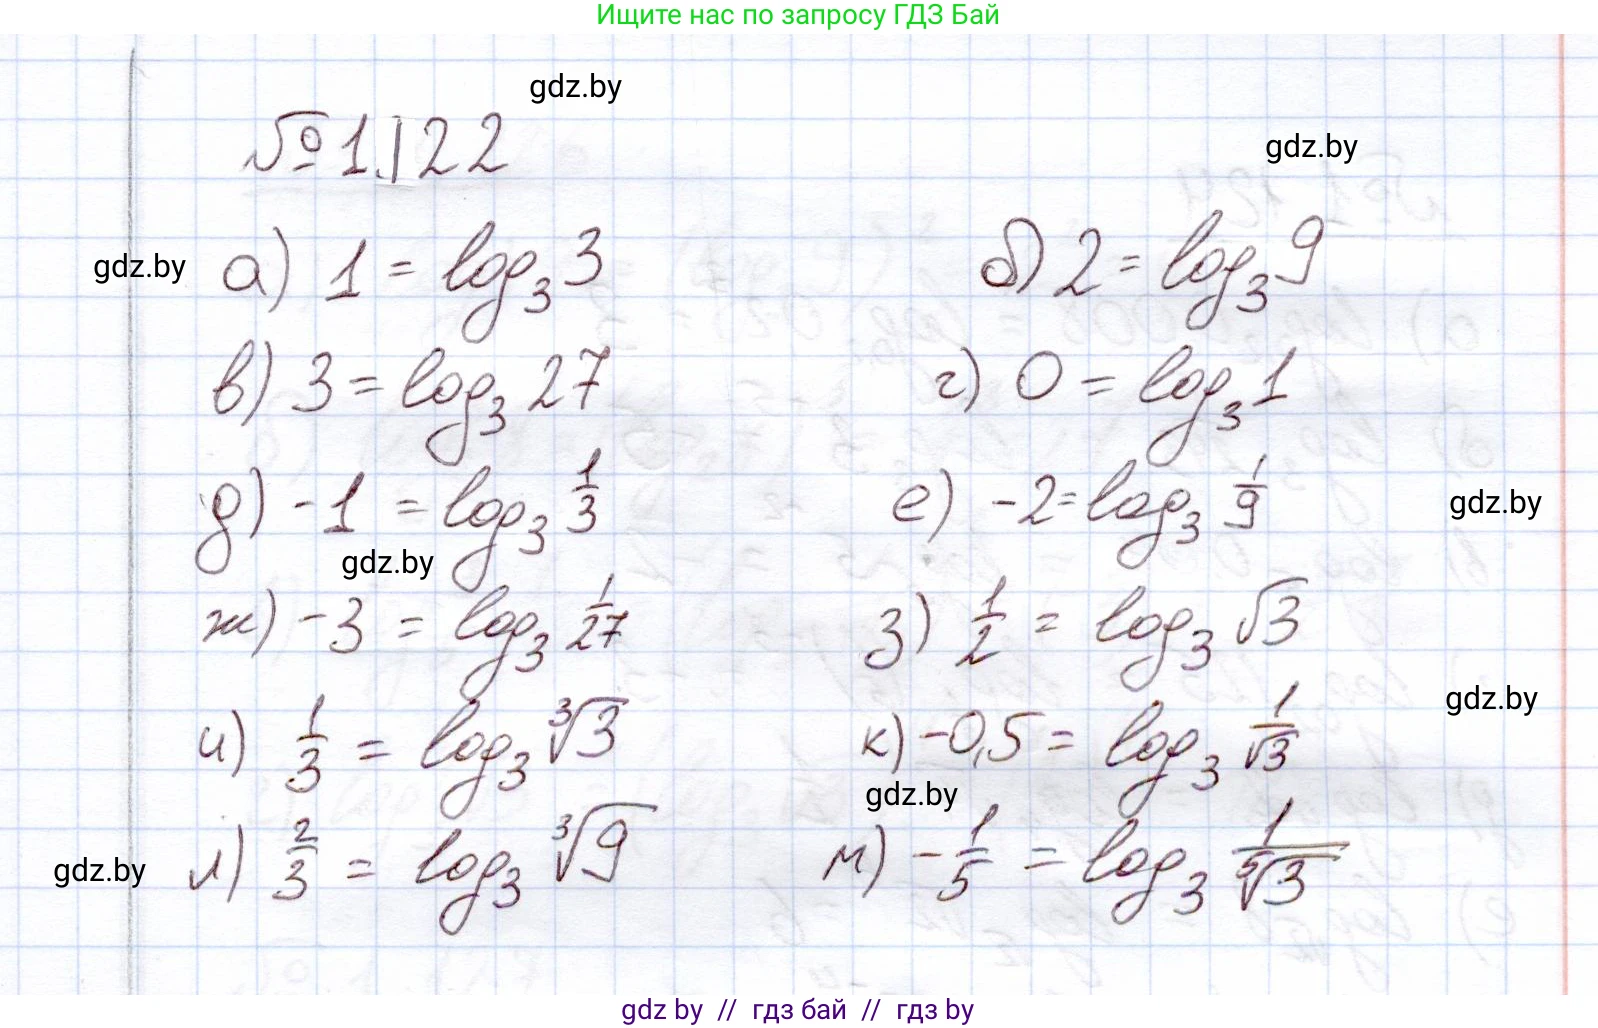 Ищите нас по запросу ГДЗ Бай
gdz.by
№ 1.122
gdz.by
gdz.by
а) 1 = log₃ 3 б) 2 = log₃ 9
в) 3 = log₃ 27 г) 0 = log₃ 1
д) -1 = log₃ 1/3 е) -2 = log₃ 1/9
gdz.by
gdz.by
ж) -3 = log₃ 1/27 з) 1/2 = log₃ √3
gdz.by
и) 1/3 = log₃ ³√3 к) -0,5 = log₃ 1/√3
gdz.by
л) 2/3 = log₃ ³√9 м) -1/5 = log₃ 1/⁵√3
gdz.by
gdz by // гдз бай // гдз by